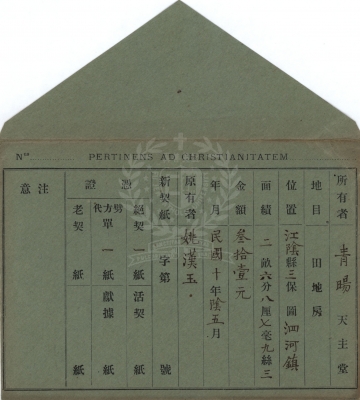 Nº. PERTINENS AD CHRISTIANITATEM
所有者 青暘 天主堂
地目 田地房
位置 江陰縣三保圖泗河鎮
面積 二畝六分八厘七毫九絲三
金額 叁拾壹元
年月 民國十年陰五月
原有者 姚漢玉
新契紙 字第 號
證 治
絕契 一紙 活契 一紙
代方單 一紙 獻據 紙
老契 紙
注意